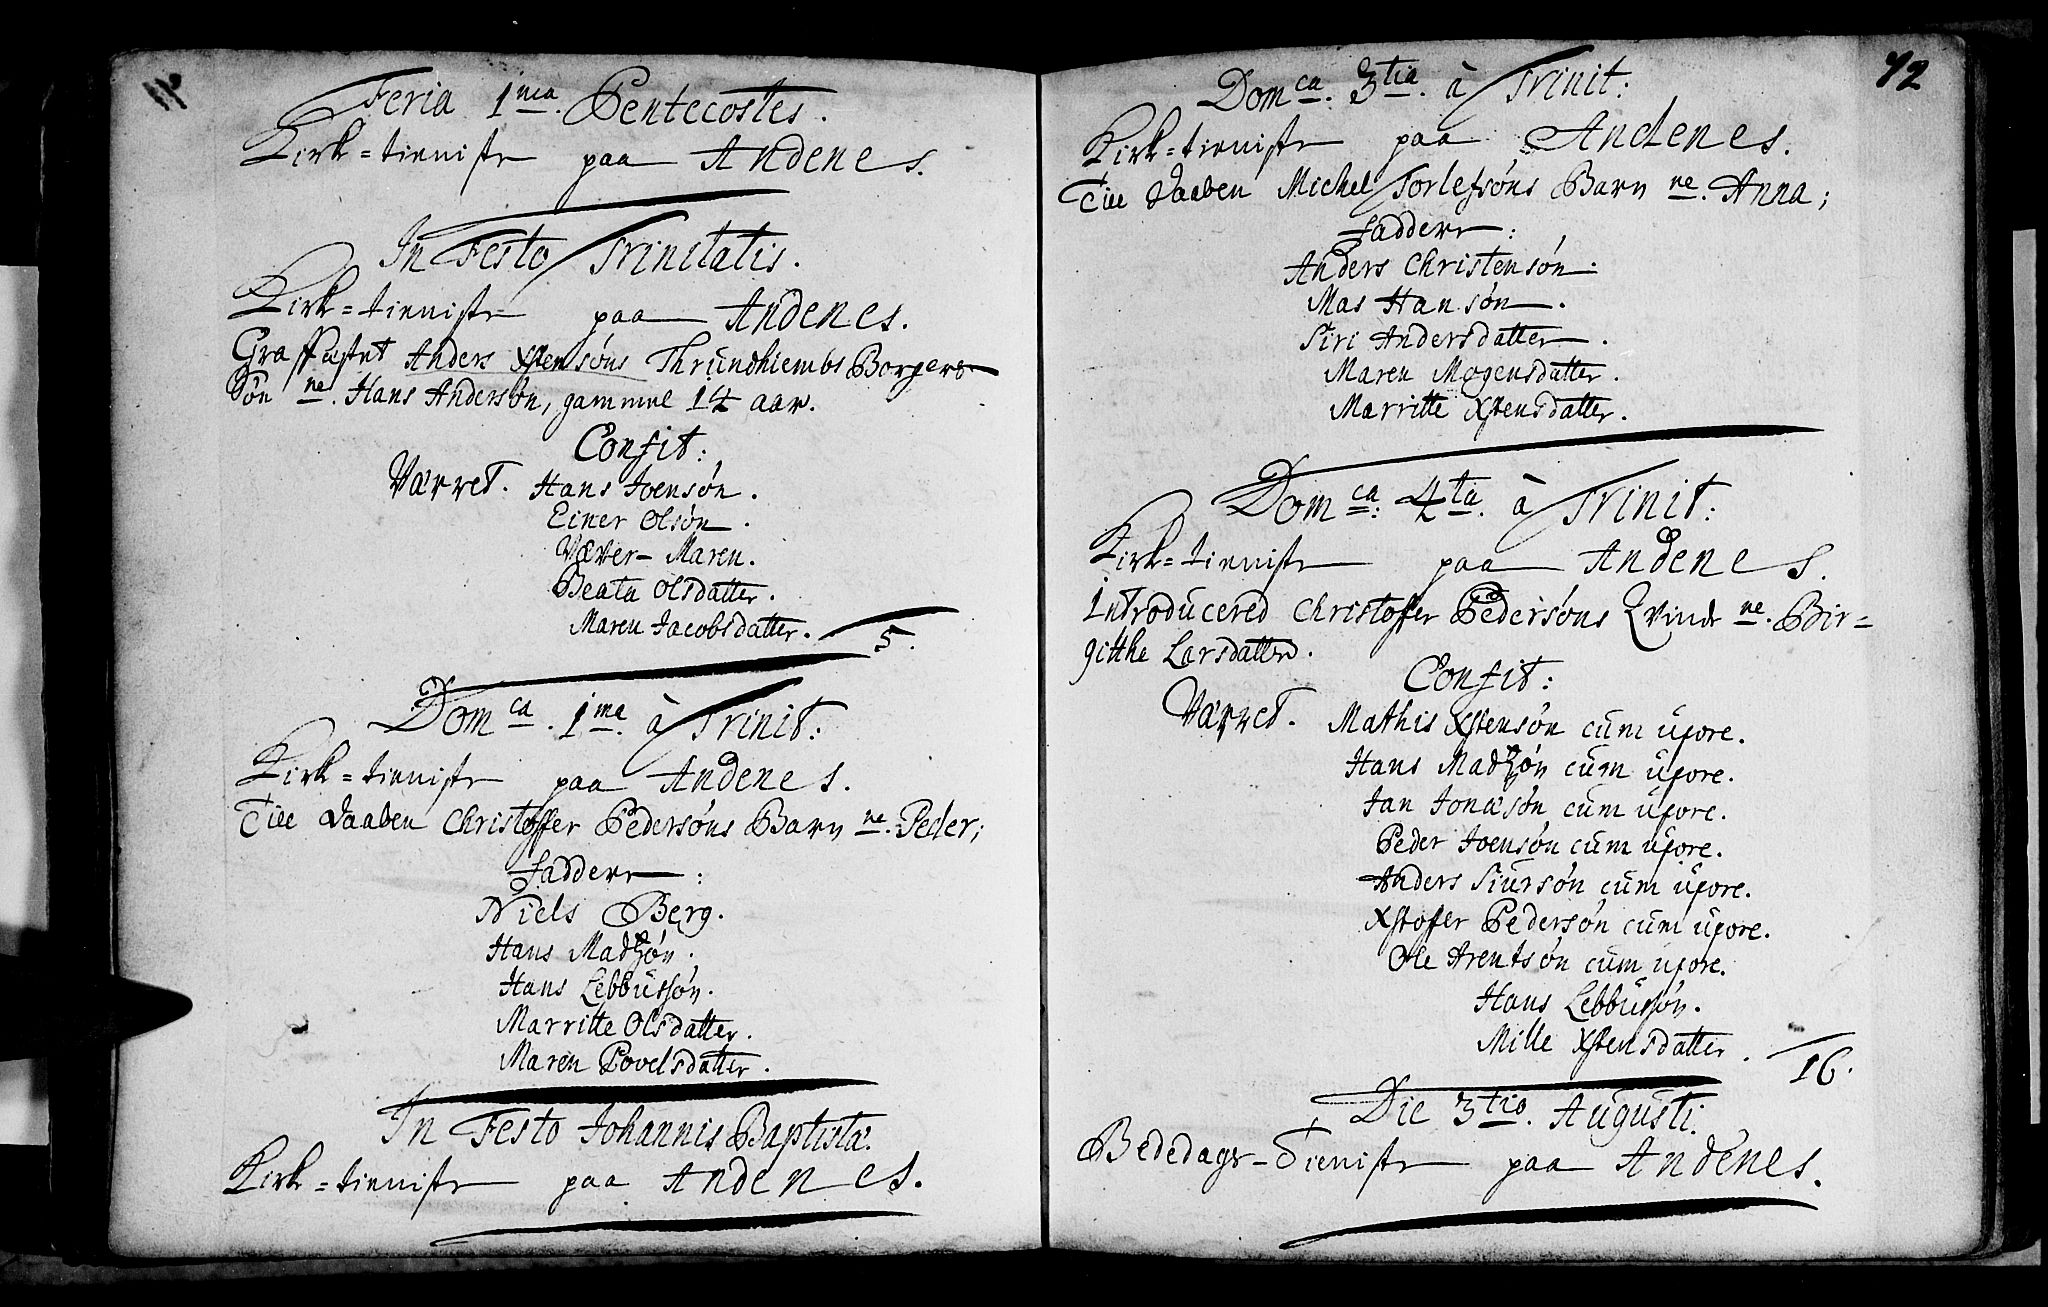 Feria 1ma. Pentecostes.
Kirk=tieniste paa Andenes.
In Festo Trinitatis.
Kirk=tieniste paa Andenes.
Graffæstet Anders Xstensøns Thrundhiembs Borgers
Søn ne. Hans Andersøn, gammel 14 aar.
Confit:
Værret. Hans Joensøn.
Einer Olsøn.
Væver-Maren.
Beata Olsdatter.
Maren Jacobsdatter. 5.
Domca. 1ma. à Trinit:
Kirk=tieniste paa Andenes.
Till Daaben Christoffer Pedersøns Barn ne. Peder;
Faddere:
Niels Berg.
Hans Madtzøn.
Hans Lebbusøn.
Marritte Olsdatter.
Maren Povelsdatter.
In Festo Johannis Baptistæ.
Kirk=tieniste paa Andenes.
42
Domca. 3tia. à Trinit:
Kirk=tieniste paa Andenes.
Till Daaben Michel Torlefsøns Barn ne. Anna;
Faddere:
Anders Christensøn.
Mas Hansøn.
Siri Andersdatter.
Maren Mogensdatter.
Marritte Xstensdatter.
Domca: 4ta. à Trinit:
Kirk=tieniste paa Andenes.
Introducered Christoffer Pedersøns Qvinde ne. Bir=
gitthe Larsdatter.
Confit:
Værret. Mathis Xstensøn cum uxore.
Hans Madtzøn cum uxore.
Jan Jonæsøn cum uxore.
Peder Joensøn cum uxore.
Anders Siursøn cum uxore.
Xstoffer Pedersøn cum uxore.
Ole Arentsøn cum uxore.
Hans Lebbusøn.
Mille Xstensdatter. 16.
Die 3tio. Augusti.
Bededags-Tieniste paa Andenes.